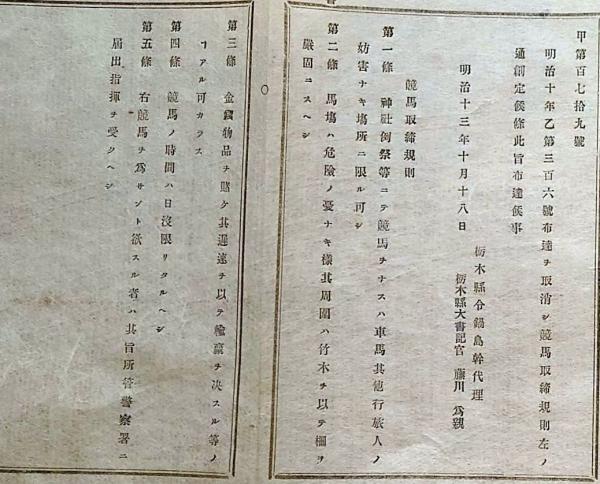 甲第百七拾九號
明治十年乙第三百六號布達ヲ取消シ競馬取締規則左ノ
通創定候條此旨布達候事
明治十三年十月十八日
栃木縣令鍋島幹代理
栃木縣大書記官 藤川爲親
競馬取締規則
第一條 神社例祭等ニテ競馬ヲナスハ車馬其他行旅人ノ
妨害ナキ塲所ニ限ル可シ
第二條 馬塲ハ危險ノ憂ナキ樣其周圍ハ竹木ヲ以テ柵ヲ
嚴固ニスヘシ
第三條 金錢物品ヲ賭ケ其遲速ヲ以テ輸贏ヲ决スル等ノ
ヿアル可カラス
第四條 競馬ノ時間ハ日沒限リタルヘシ
第五條 右競馬ヲ爲サント欲スル者ハ其旨所管警察署ニ
届出指揮ヲ受クヘシ